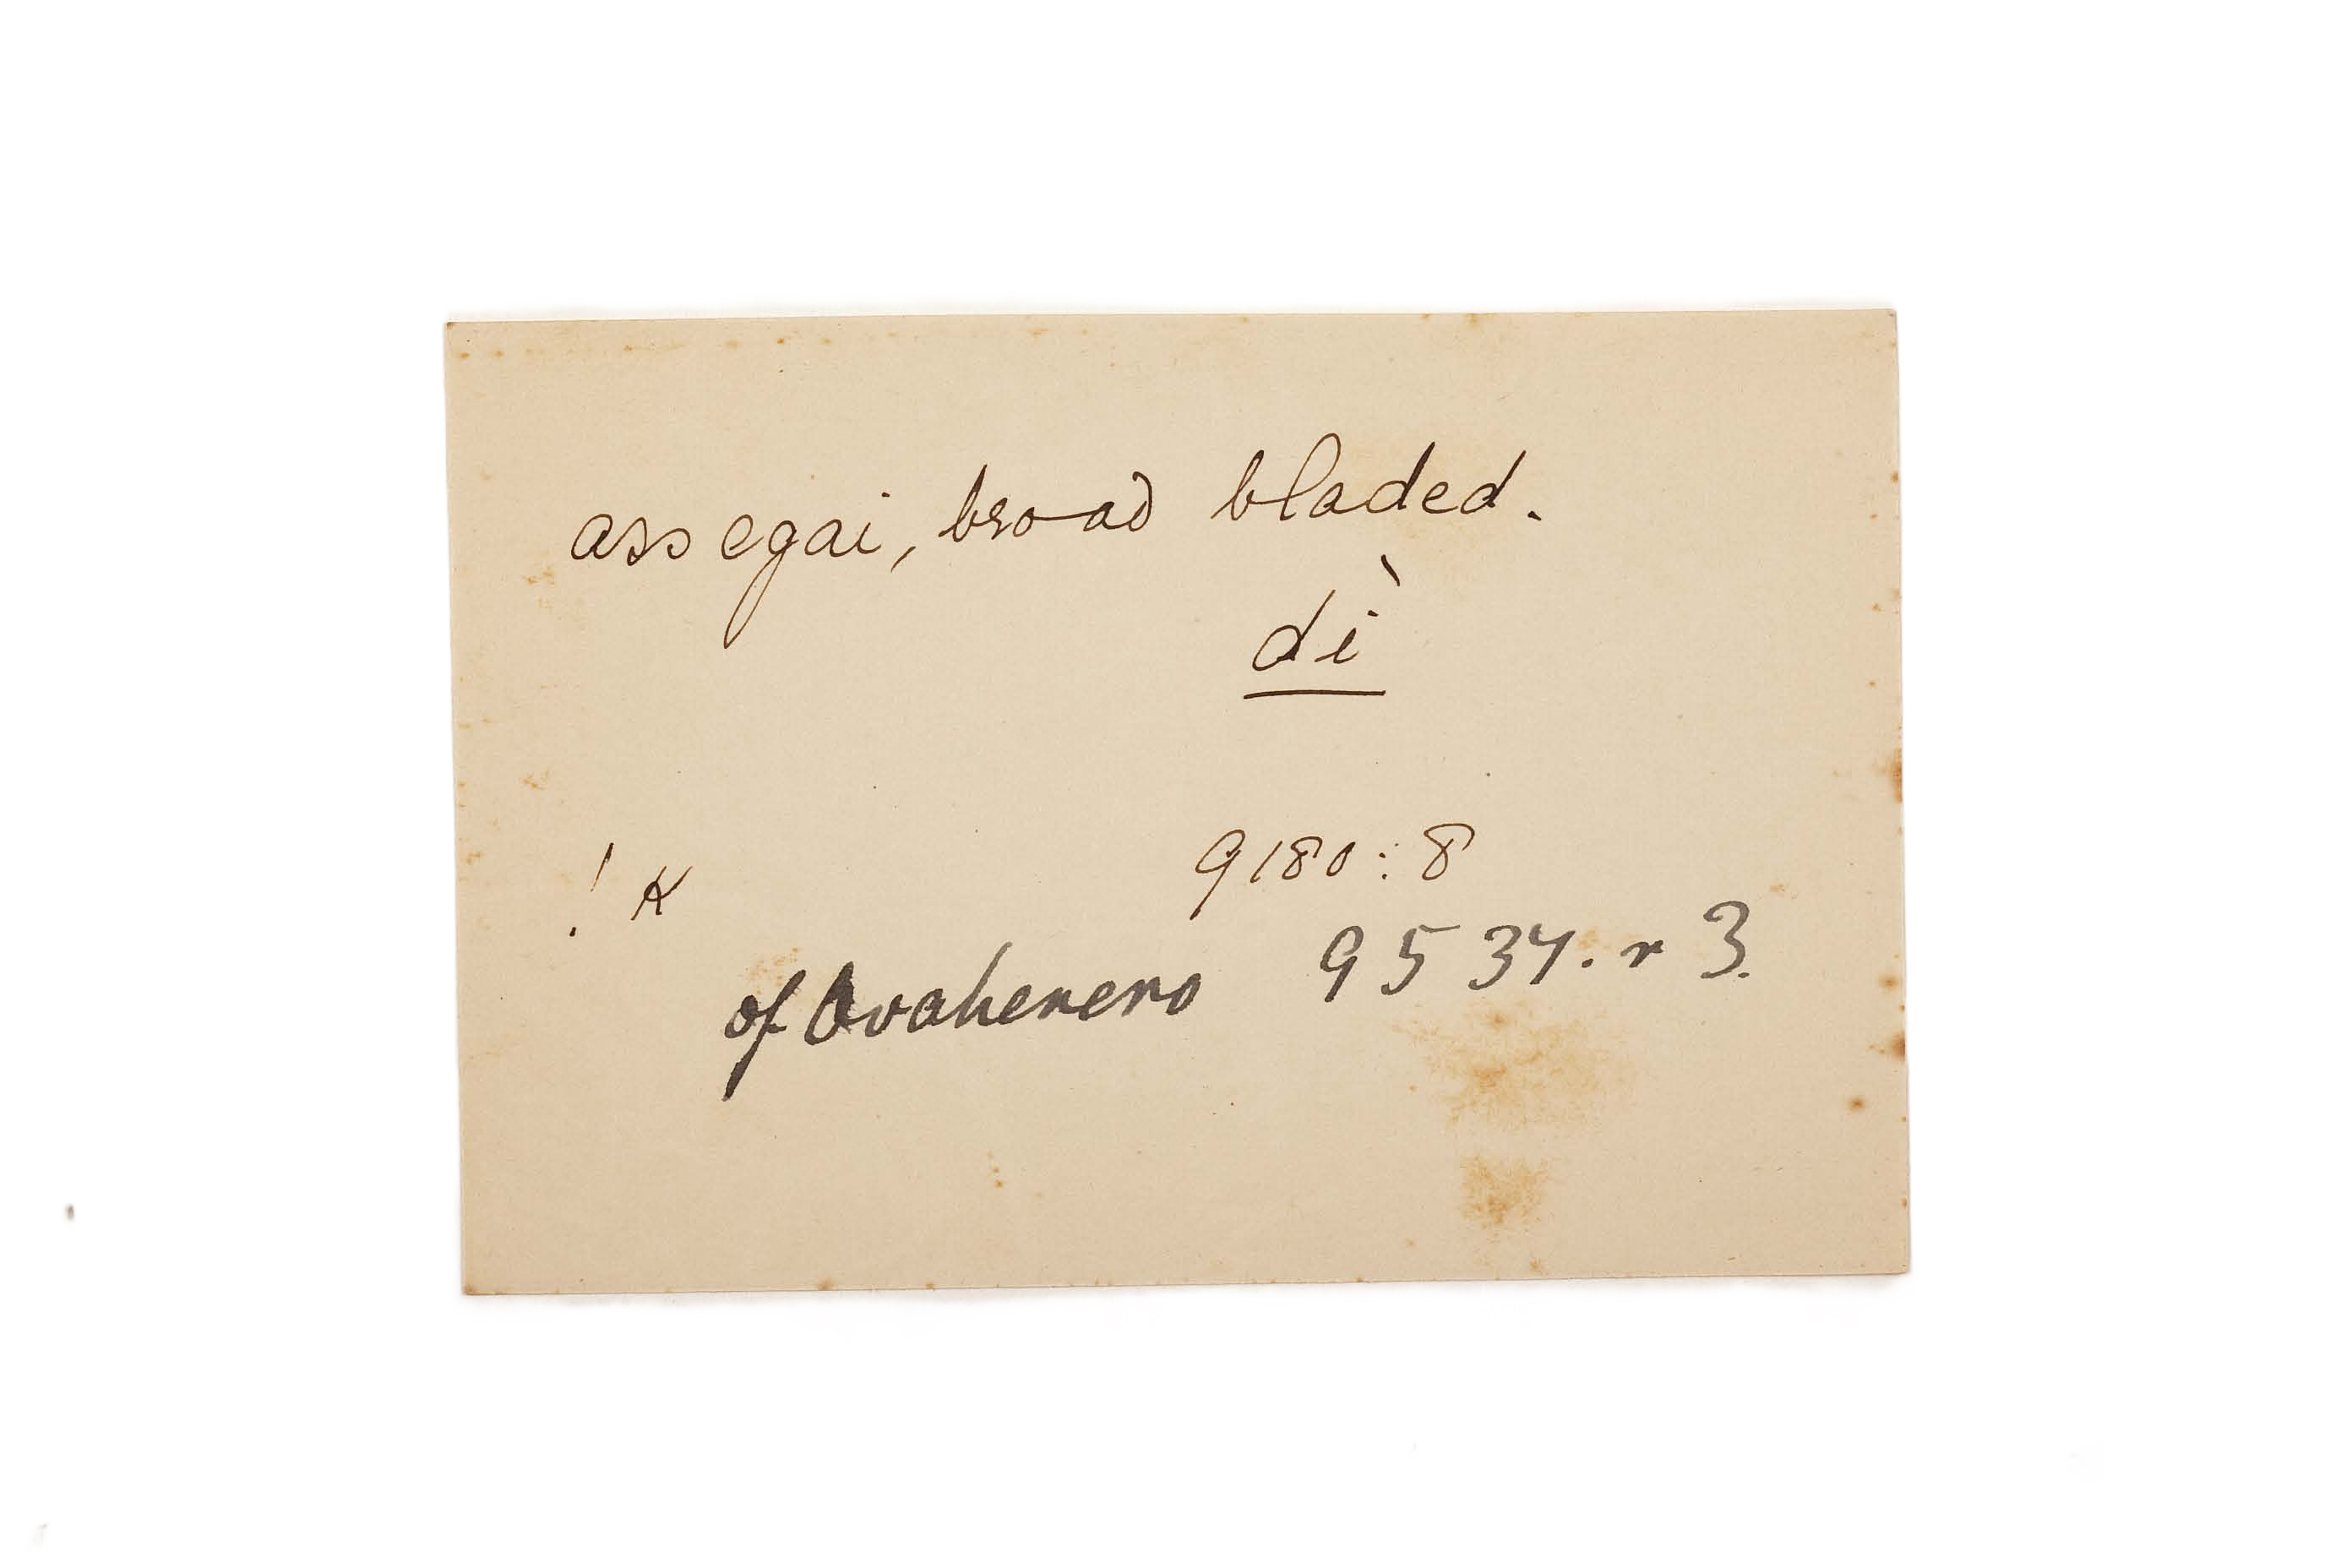 assegai, broad bladed.
dì
! K 9180:8
of Ovaherero 9534. r 3.